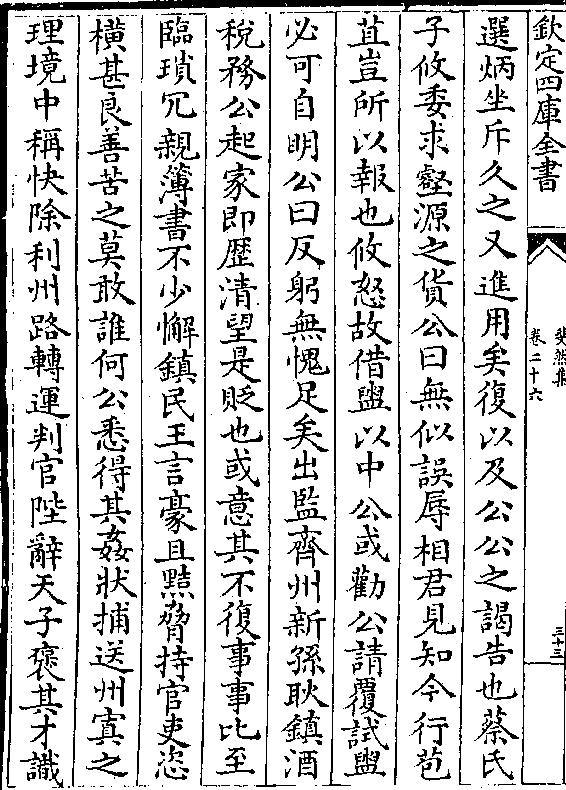 欽定四庫全書
斐然集
卷二十六
三十三
選炳坐斥久之又進用矣復以及公公之謁告也蔡氏
子攸委求壑源之貨公曰無似誤辱相君見知今行苞
苴豈所以報也攸怒故借盥以中公或勸公請覆試盥
必可自明公曰反躬無愧足矣出監齊州新孫耿鎮酒
稅務公起家即歴清望是貶也或意其不復事事比至
臨瑣冗親簿書不少懈鎮民王言豪且黠脅持官吏恣
橫甚良善苦之莫敢誰何公悉得其姦狀捕送州寘之
理境中稱快除利州路轉運判官陛辭天子褒其才識